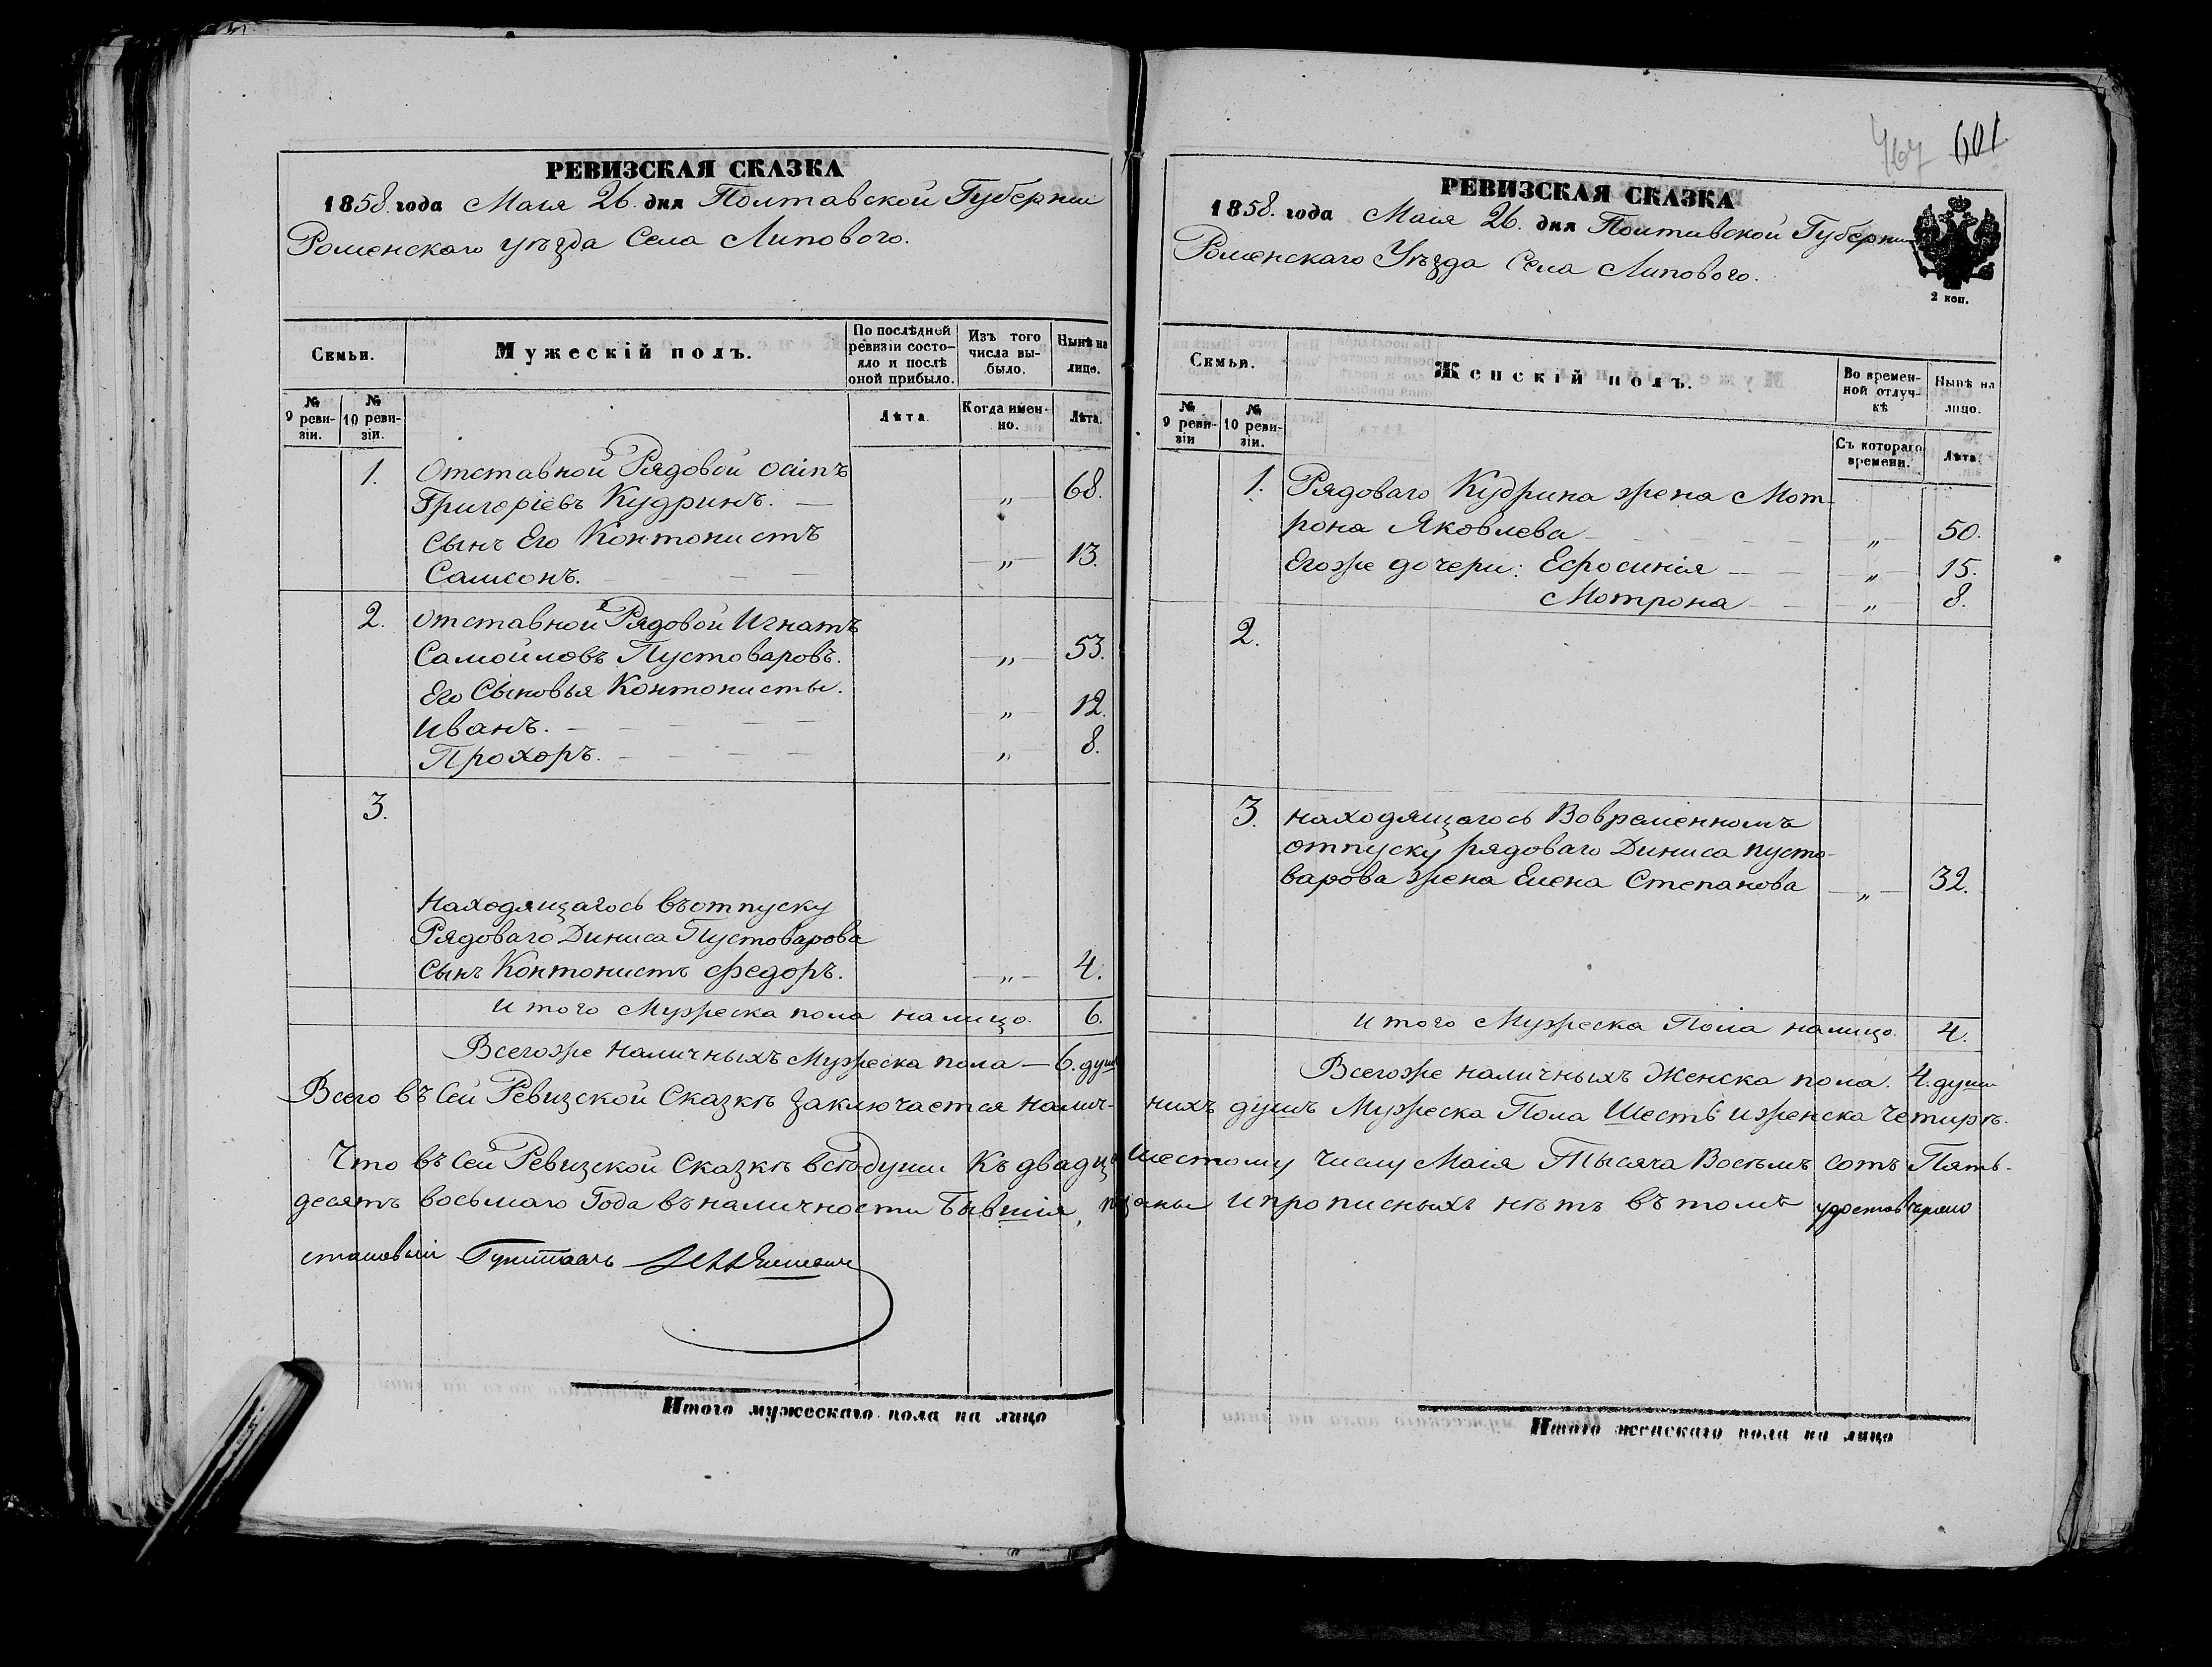 РЕВИЗСКАЯ СКАЗКА
1858. года Маія 26. дня Полтавской Губерніи
Роменскаго уѣзда Села Липового.
Семьи.
Мужескій полъ.
По послѣдней ревизіи состояло и послѣ оной прибыло.
Изъ того числа выбыло.
Нынѣ на лицо.
№ 9 ревизіи.
№ 10 ревизіи.
Лѣта.
Когда именно.
Лѣта.
1. Отставной Рядовой Осипъ
Григоріевъ Кудринъ. — „ 68.
Сынъ Его Контонистъ
Самсонъ. „ 13.
2. Отставной Рядовой Игнатъ
Самойловъ Пустоваровъ. „ 53.
Его Сыновья Контонисты.
Иванъ. „ 12.
Прохоръ. „ 8.
3.
Находящагось въотпуску
Рядоваго Диниса Пустоварова
Сынъ Контонистъ Федоръ. „ 4.
Итого Мужеска пола налицо. 6.
Всегоже наличныхъ Мужеска пола — 6. душ
Всего въ Сей Ревизской Сказкѣ Заключается налич-
Что въ Сей Ревизской Сказкѣ всѣдуши Къ двадць
десятъ восьмаго Года въ наличности Бывшія,
становый
Итого мужескаго пола на лицо
467 601
РЕВИЗСКАЯ СКАЗКА
1858. года Маія 26. дня Полтавской Губерніи
Роменскаго Уѣзда Села Липового.
2 коп.
Семьи.
Женскій полъ.
Во временной отлучкѣ
Нынѣ на лицо.
№ 9 ревизіи
№ 10 ревизіи.
Съ котораго времени.
Лѣта.
1. Рядоваго Кудрина жена Мот-
рона Яковлева „ 50.
Егоже дочери: Ефросинія „ 15.
Мотрона „ 8.
2.
3. находящагось Вовременномъ
отпуску рядоваго Диниса Пусто-
варова жена Елена Степанова „ 32.
Итого Мужеска Пола налицо. 4.
Всегоже наличныхъ Женска пола. 4. души
нихъ душъ Мужеска Пола Шесть и женска четирѣ.
шестому числу Маія Тысяча Восѣмъ сотъ Пять-
и прописныхъ нѣтъ въ томъ
Итого женскаго пола на лицо